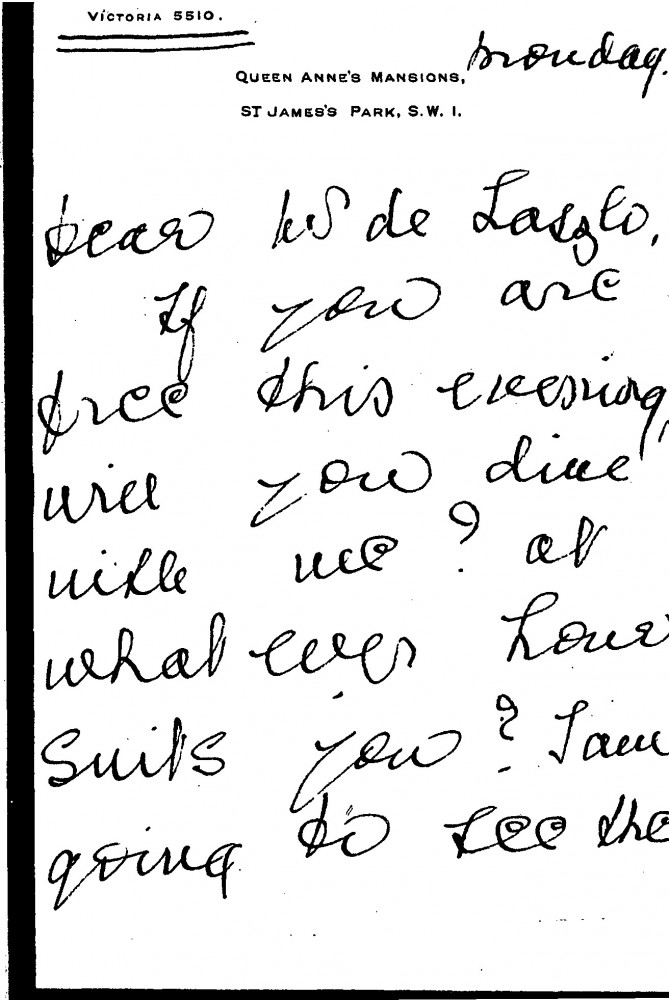 VICTORIA 5510.
Monday.
QUEEN ANNE'S MANSIONS,
ST JAMES'S PARK, S.W. 1.
Dear Mr de Laszlo,
If you are
free this evening,
will you dine
with me? at
what ever hour
suits you? I am
going to see the